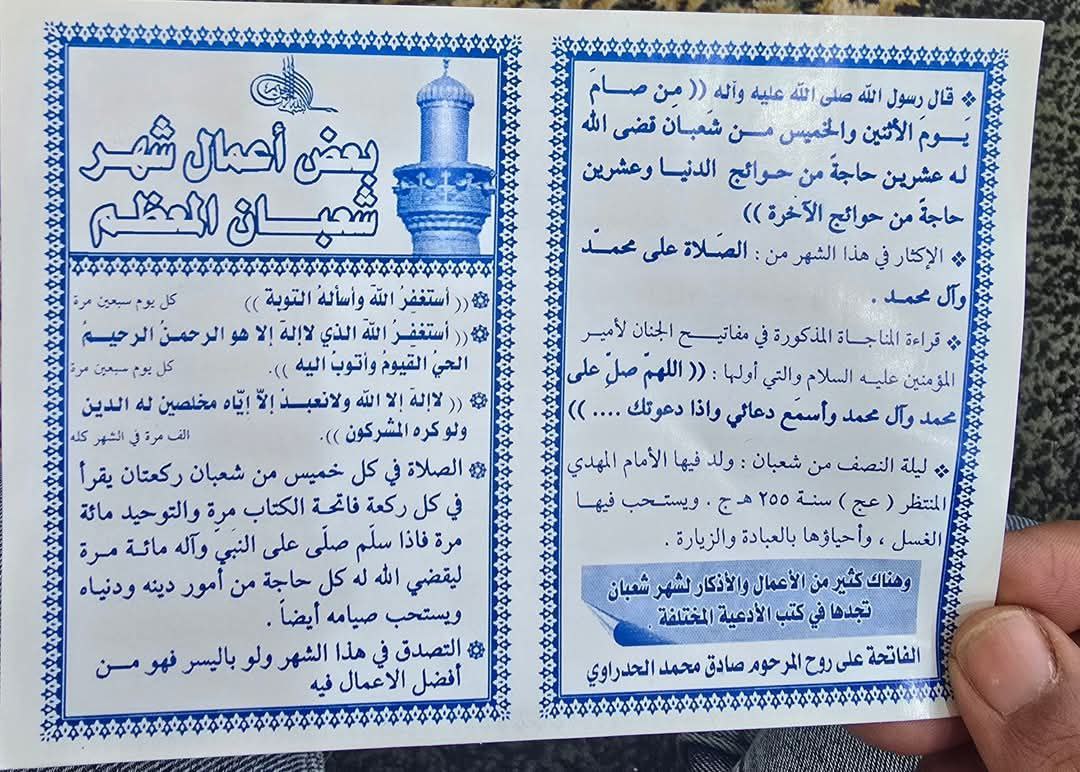 بعض أعمال شهر
شعبان المعظم
(( أستغفِرُ اللهَ وأسألهُ التوبة )) كل يوم سبعين مرة
(( أستغفِرُ اللهَ الذي لاإلهَ إلا هو الرحمنُ الرحيمُ
الحيُ القيومُ وأتوبُ اليه )). كل يوم سبعين مرة
(( لاإلهَ إلا الله ولانعبدُ إلاّ إيّاه مخلصين له الدين
ولو كره المشركون )). الف مرة في الشهر كله
الصلاة في كل خميس من شعبان ركعتان يقرأ
في كل ركعة فاتحة الكتاب مرة والتوحيد مائة
مرة فاذا سلّم صلّى على النبي وآله مائة مرة
ليقضي الله له كل حاجة من أمور دينه ودنياه
ويستحب صيامه أيضاً .
التصدق في هذا الشهر ولو باليسر فهو من
أفضل الاعمال فيه
❖ قال رسول الله صلى الله عليه وآله (( مِن صامَ
يَومَ الأثنين والخميس من شَعبان قضى الله
له عشرين حاجةً من حوائج الدنيا وعشرين
حاجةً من حوائج الآخرة ))
❖ الإكثار في هذا الشهر من : الصَلاة على محمدّ
وآل محمد .
❖ قراءة المناجاة المذكورة في مفاتيح الجنان لأمير
المؤمنين عليه السلام والتي أولها : (( اللهمّ صلِّ على
محمد وآل محمد وأسمَع دعائي واذا دعوتك .... ))
❖ ليلة النصف من شعبان : ولد فيها الأمام المهدي
المنتظر ( عج ) سنة ٢٥٥ هـ ج . ويستحب فيها
الغسل ، وأحياؤها بالعبادة والزيارة .
وهناك كثير من الأعمال والأذكار لشهر شعبان
تجدها في كتب الأدعية المختلفة .
الفاتحة على روح المرحوم صادق محمد الحدراوي